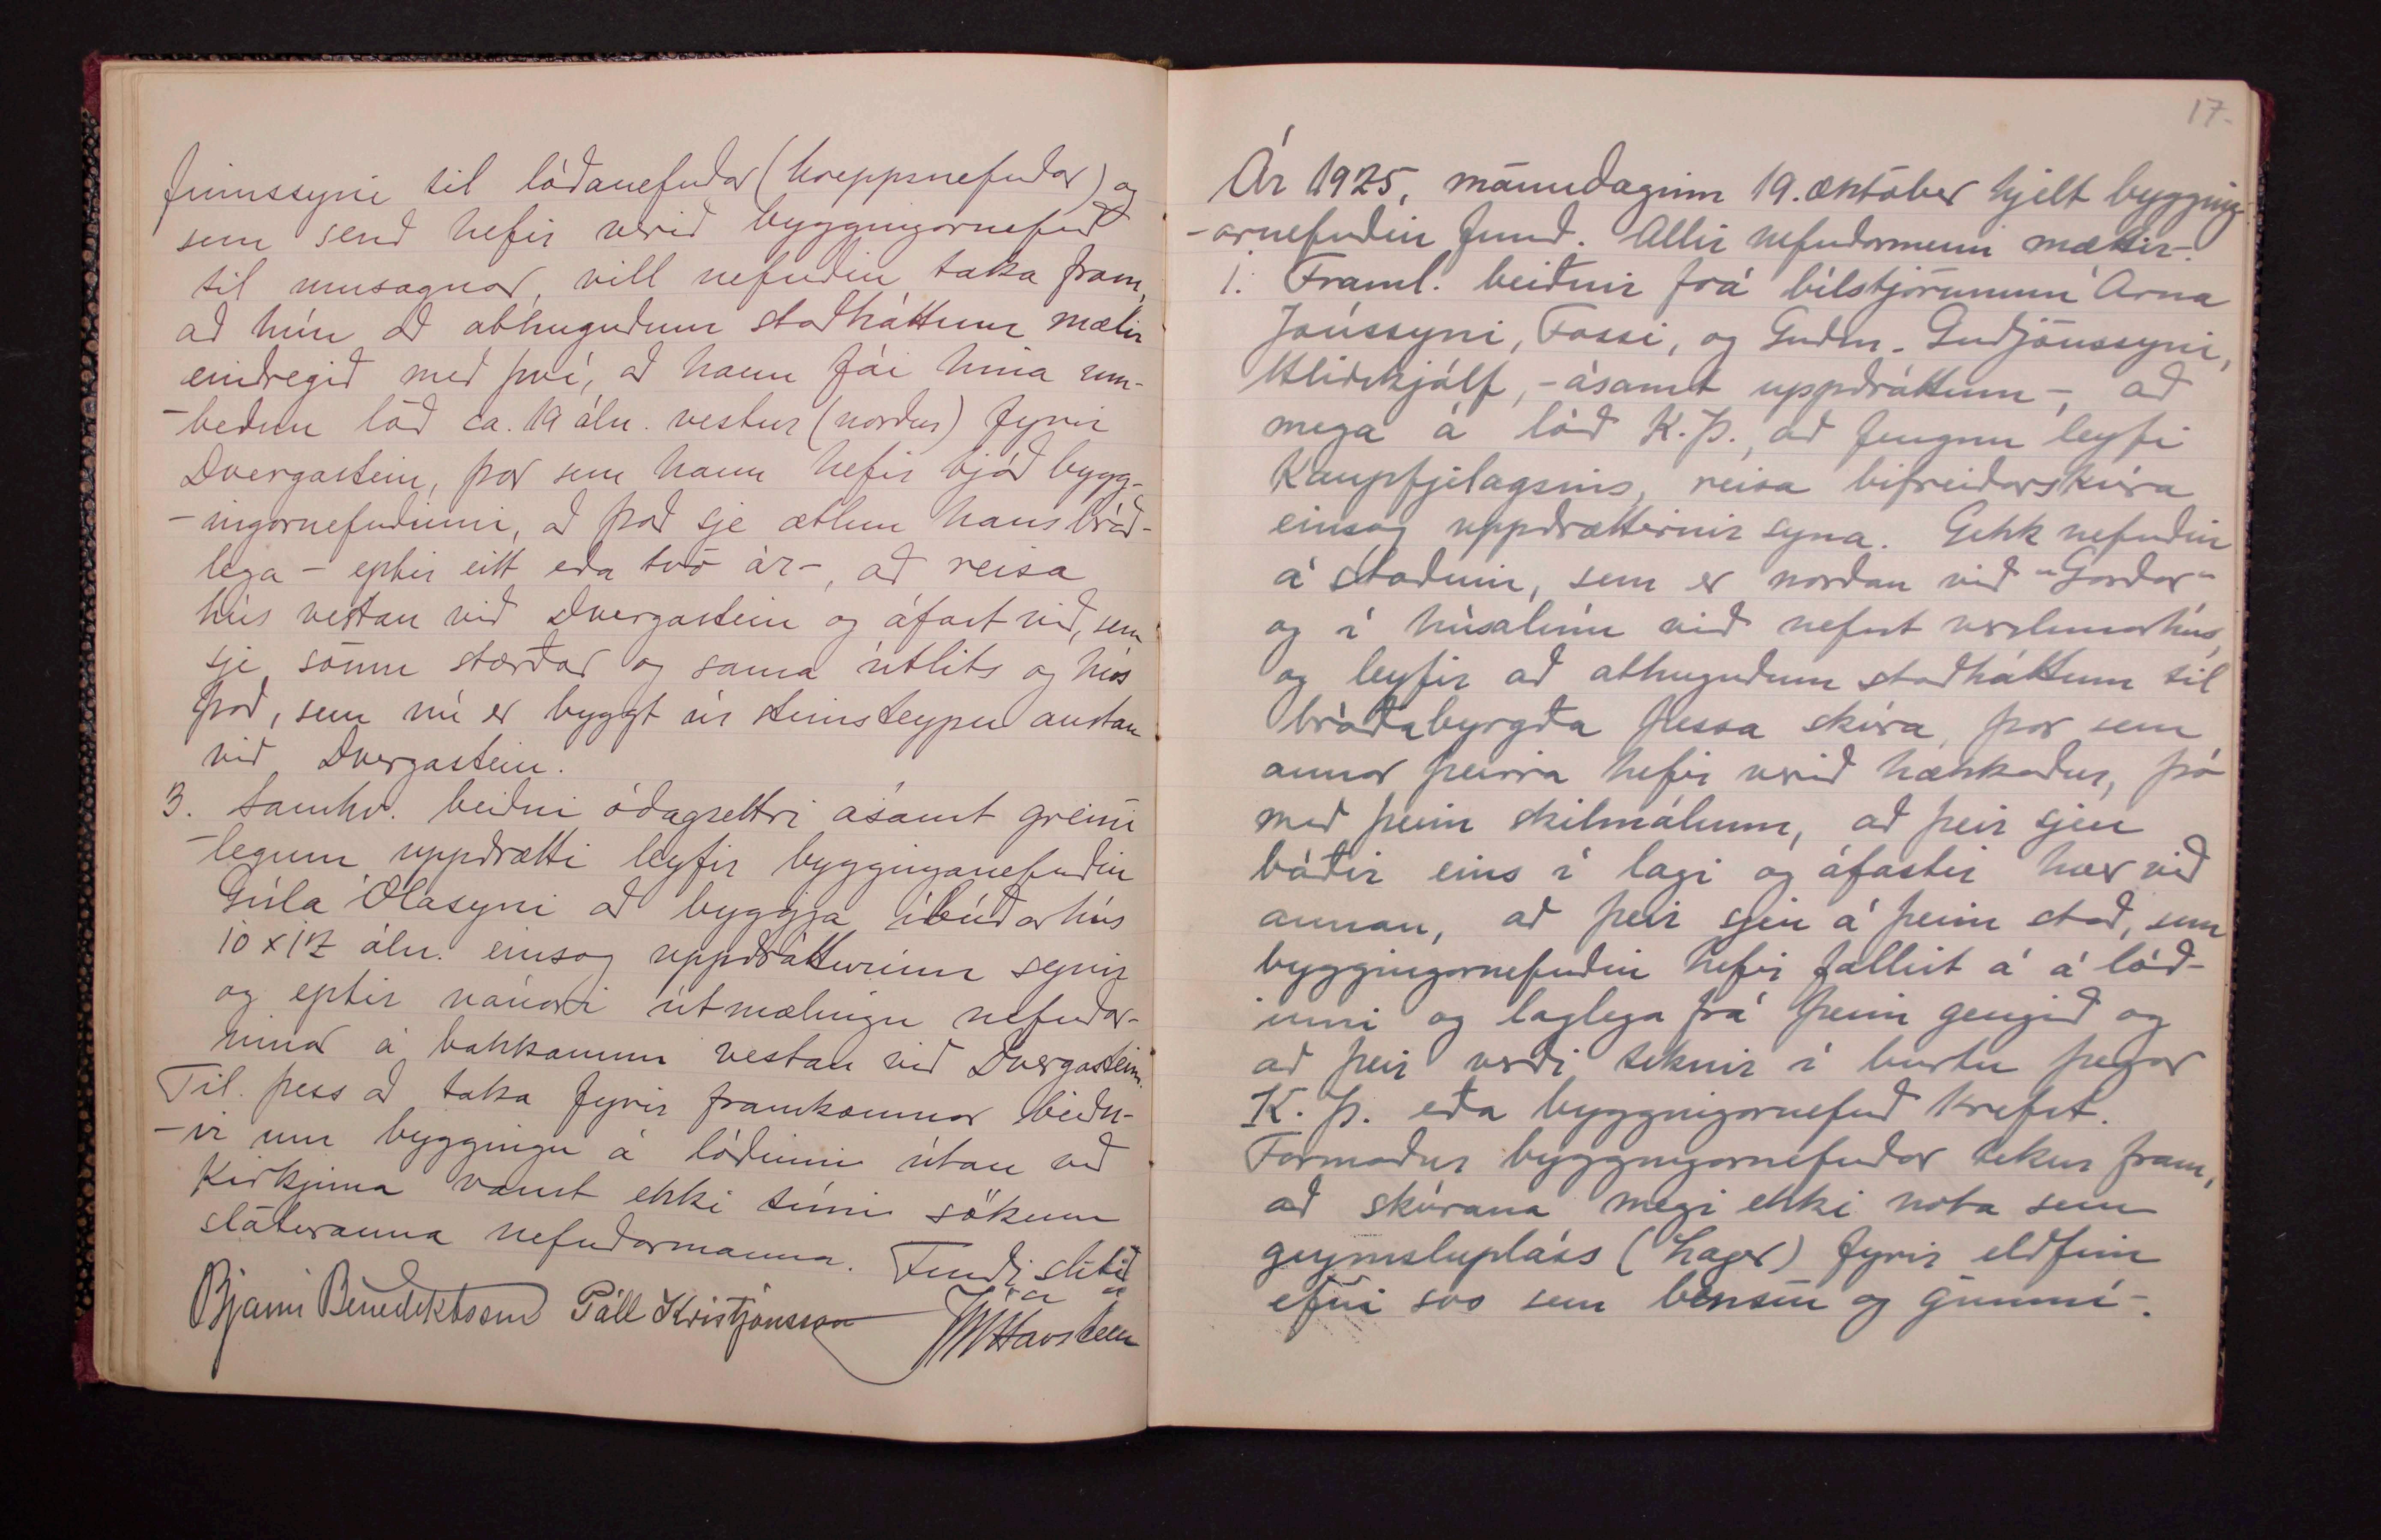 finnssyni til lóðanefndar (hreppsnefndar) og
sem send hefir verið byggingarnefnd
til umsagnar, vill nefndin taka fram,
að hún að athuguðum staðháttum mælir
eindregið með því, að hann fái hina um-
-beðnu lóð ca. 19 áln. vestur (norður) fyrir
Dvergastein, þar sem hann hefir tjáð bygg-
-ingarnefndinni, að það sje ætlun hans bráð-
lega - eptir eitt eða tvö ár -, að reisa
hús vestan við Dvergastein og áfast við, sem
sje sömu stærðar og sama útlits og hús
það, sem nú er byggt úr steinsteypu austan
við Dvergastein.
3. Samkv. beiðni ódagsettri ásamt greini
-legum uppdrætti leyfir bygginganefndin
Gísla Ólasyni að byggja íbúðarhús
10 x 12 áln. einsog uppdrátturinn sýnir
og eptir nánari útmælingu nefndar-
innar á bakkanum vestan við Dvergastein.
Til þess að taka fyrir framkomnar beiðn-
-ir um byggingu á lóðinni útan við
Kirkjuna vanst ekki tími sökum
sláturanna nefndarmanna. Fundi slitið
Bjarni Benediktsson Páll Kristjánsson
JHavsteen
17-
Ár 1925, mánudaginn 19. október hjelt bygging
-arnefndin fund. Allir nefndarmenn mættir -.
1. Framl. beiðnir frá bílstjórunum Árna
Jónssyni, Fossi, og Guðm. Guðjónssyni,
Hliðskjálf, - ásamt uppdráttum -, að
mega á lóð K.Þ., að fengnu leyfi
Kaupfjelagsins, reisa bifreiðarskúra
einsog uppdrættirnir sýna. Gekk nefndin
á staðinn, sem er norðan við "Garðar"
og í húsalínu við nefnt verslunarhús,
og leyfir að athuguðum staðháttum til
bráðabyrgða þessa skúra, þar sem
annar þeirra hefir verið hækkaður, þó
með þeim skilmálum, að þeir sjeu
báðir eins í lagi og áfastir hver við
annan, að þeir sjeu á þeim stað, sem
byggingarnefndin hefir fallist á á lóð-
inni og laglega frá þeim gengið og
að þeir verði teknir í burtu þegar
K.Þ. eða byggingarnefnd krefst.
Formaður byggingarnefndar tekur fram,
að skúrana megi ekki nota sem
geymslupláss (Lager) fyrir eldfim
efni svo sem bensín og gúmmí -.